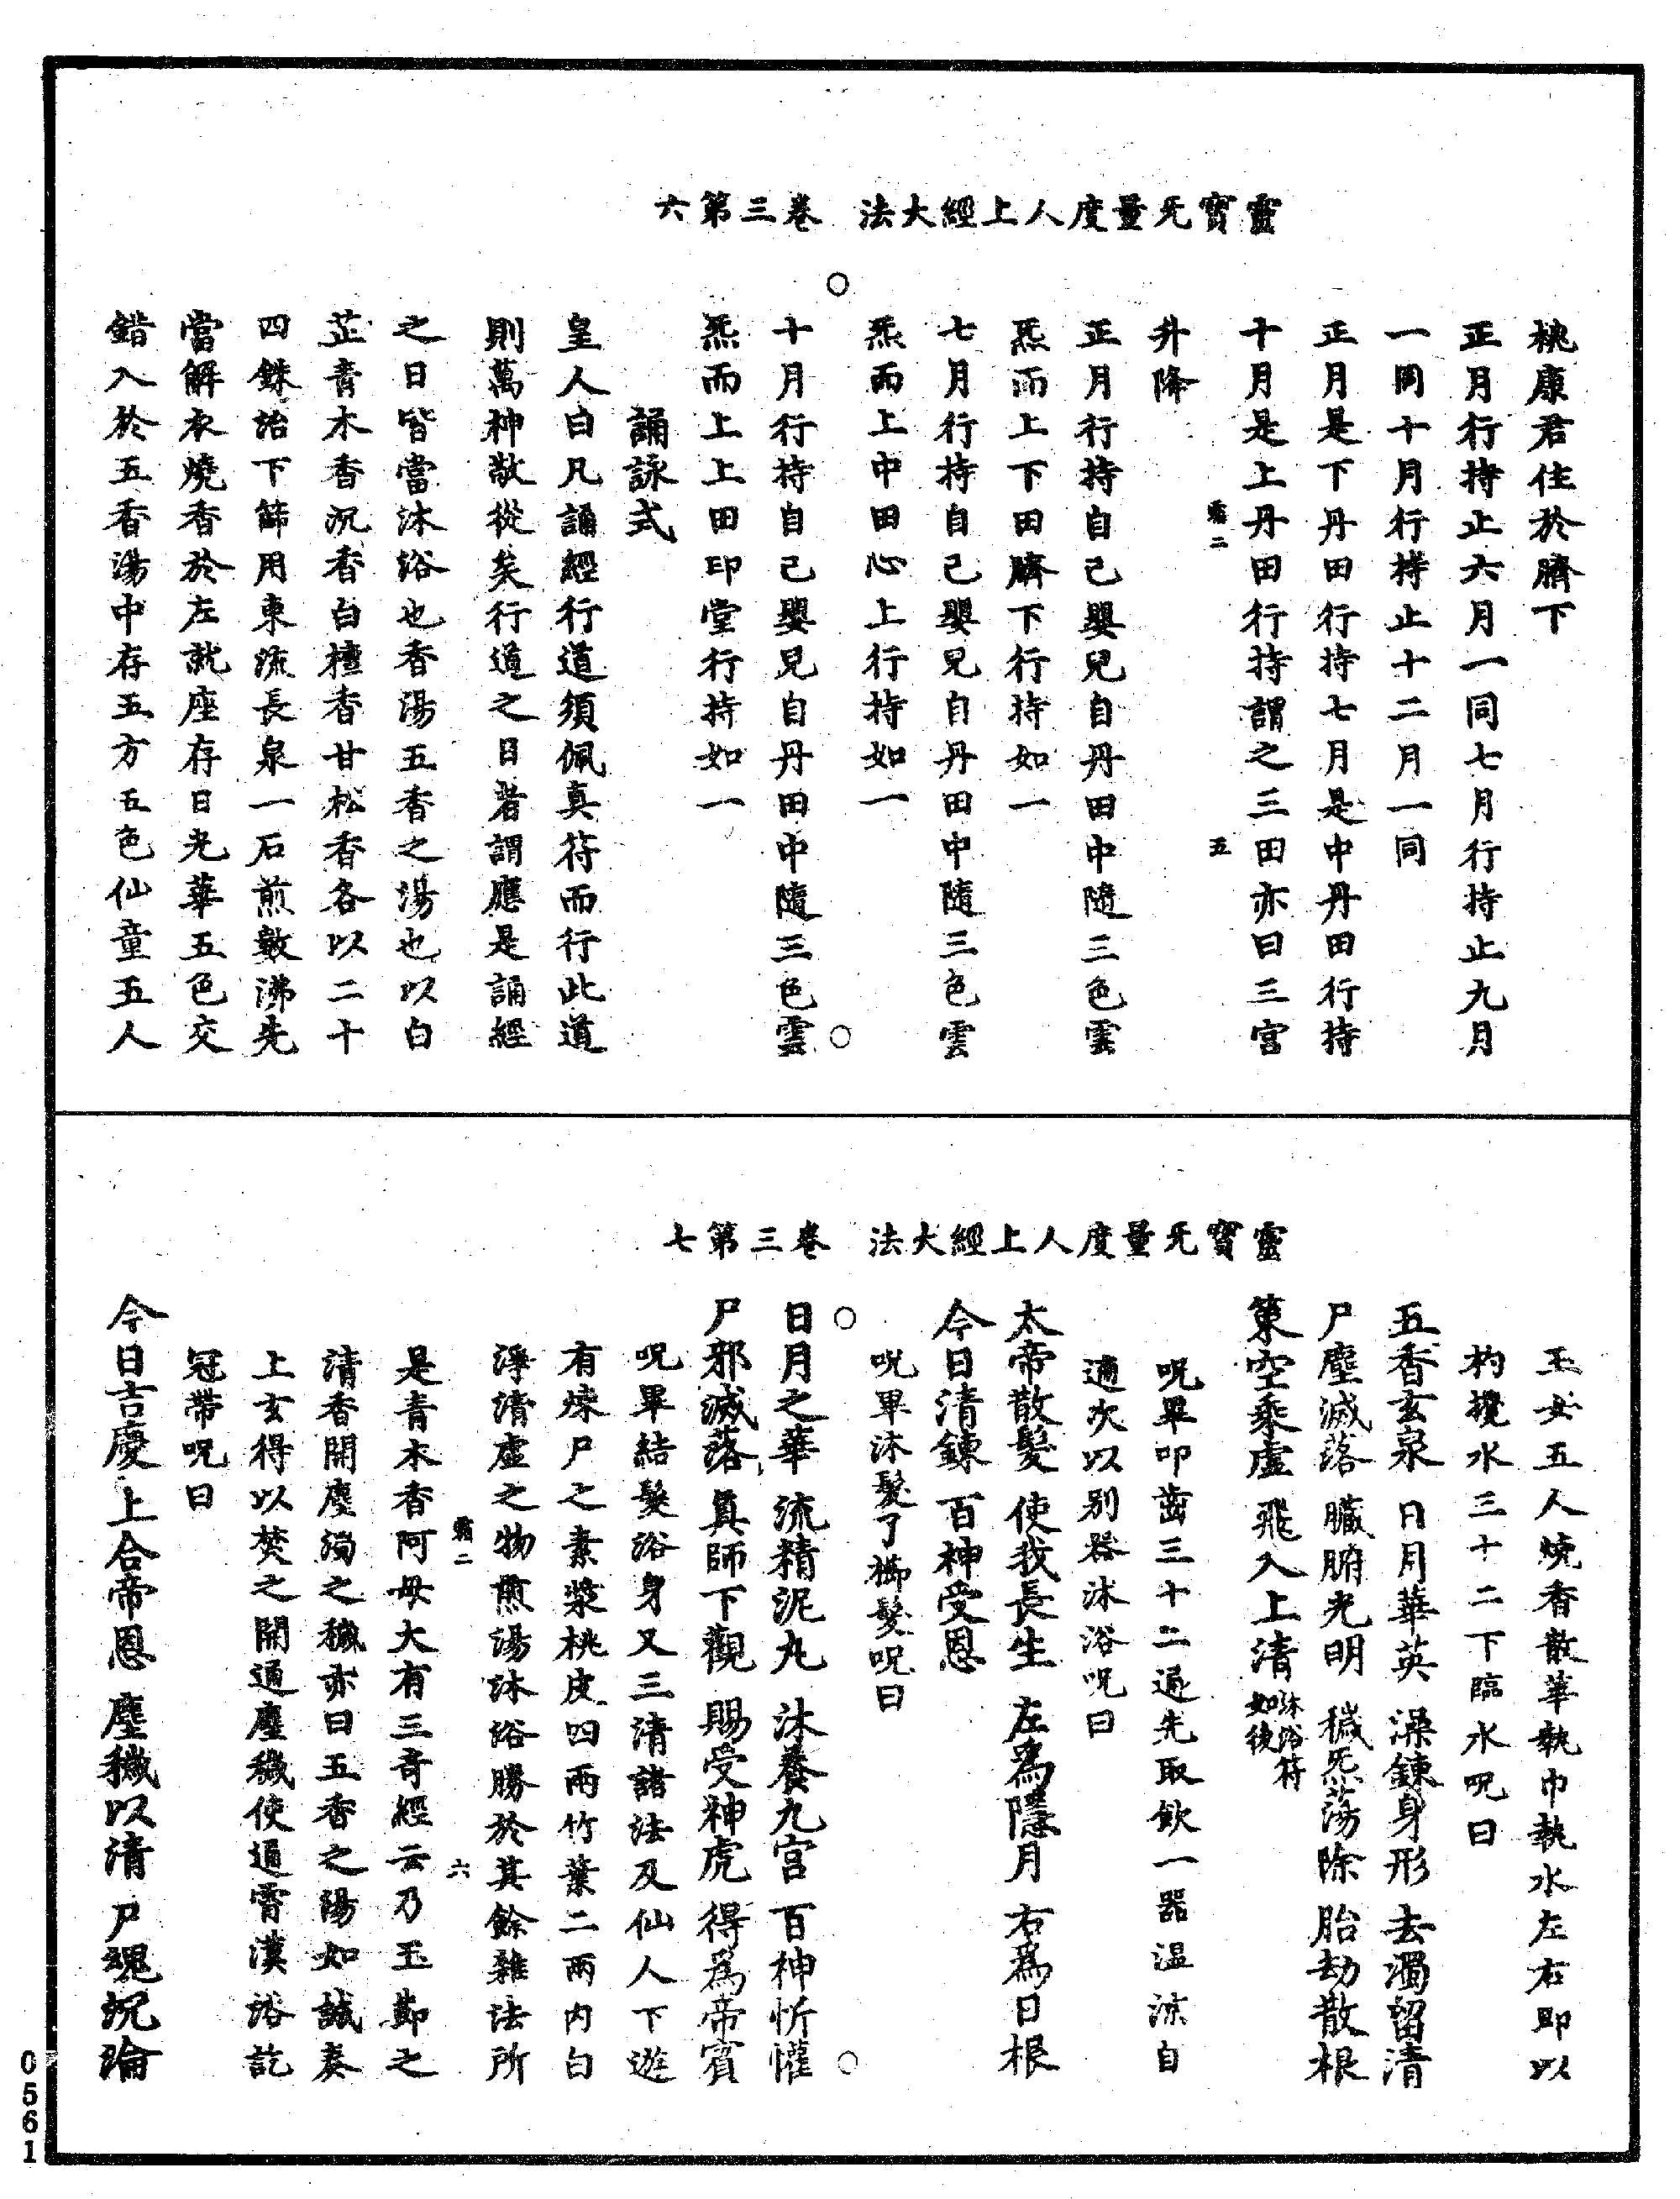 靈寶旡量度人上經大法　卷三第六
桃康君住於臍下
正月行持止六月一同七月行持止九月
一同十月行持止十二月一同
正月是下丹田行持七月是中丹田行持
十月是上丹田行持謂之三田亦曰三宮
霜二　五
升降
正月行持自己嬰兒自丹田中隨三色雲
炁而上下田臍下行持如一
七月行持自己嬰兒自丹田中隨三色雲
炁而上中田心上行持如一
十月行持自己嬰兒自丹田中隨三色雲
炁而上上田印堂行持如一
誦詠式
皇人曰凡誦經行道須佩真符而行此道
則萬神敬從矣行道之日者謂應是誦經
之日皆當沐浴也香湯五香之湯也以白
芷青木香沉香白檀香甘松香各以二十
四銖治下篩用東流長泉一石煎數沸先
當解衣燒香於左就座存日光華五色交
錯入於五香湯中存五方五色仙童五人
靈寶旡量度人上經大法　卷三第七
玉女五人燒香散華執巾執水左右即以
杓攪水三十二下臨水呪曰
五香玄泉　日月華英　澡鍊身形　去濁留清
尸塵滅落　臟腑光明　穢炁蕩除　胎劫散根
策空乘虛　飛入上清　沐浴符如後
呪畢叩齒三十二通先取飲一器温涼自
適次以别器沐浴呪曰
太帝散髮　使我長生　左爲隱月　右爲日根
今日清鍊　百神受恩
呪畢沐髮了櫛髮呪曰
日月之華　流精泥丸　沐養九宮　百神忻懽
尸邪滅落　真師下觀　賜受神虎　得爲帝賓
呪畢結髮浴身又三清諸法及仙人下遊
有煉尸之素漿桃皮四兩竹葉二兩内白
淨清虛之物煎湯沐浴勝於其餘雜法所
霜二　六
是青木香阿母大有三奇經云乃玉節之
清香開塵濁之穢亦曰五香之陽如誠奏
上玄得以焚之開通塵穢使通霄漢浴訖
冠帶呪曰
今日吉慶　上合帝恩　塵穢以清　尸魂沉淪
0561